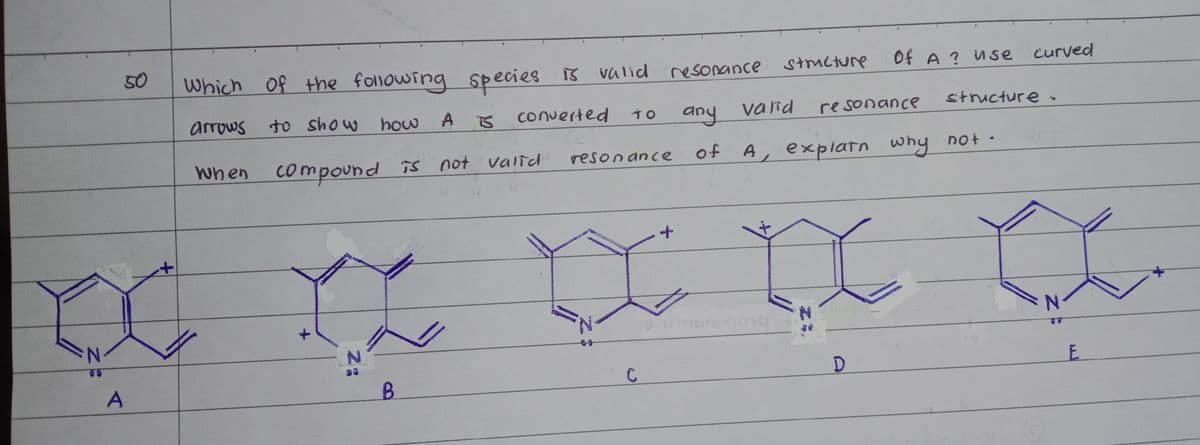 50 Which Of the following species is valid resonance structure Of A ? use curved
arrows to show how A is converted to any valid resonance structure .
When compound is not valid resonance of A, explain why not .
+ + + + +
N N N N N
A B C D E